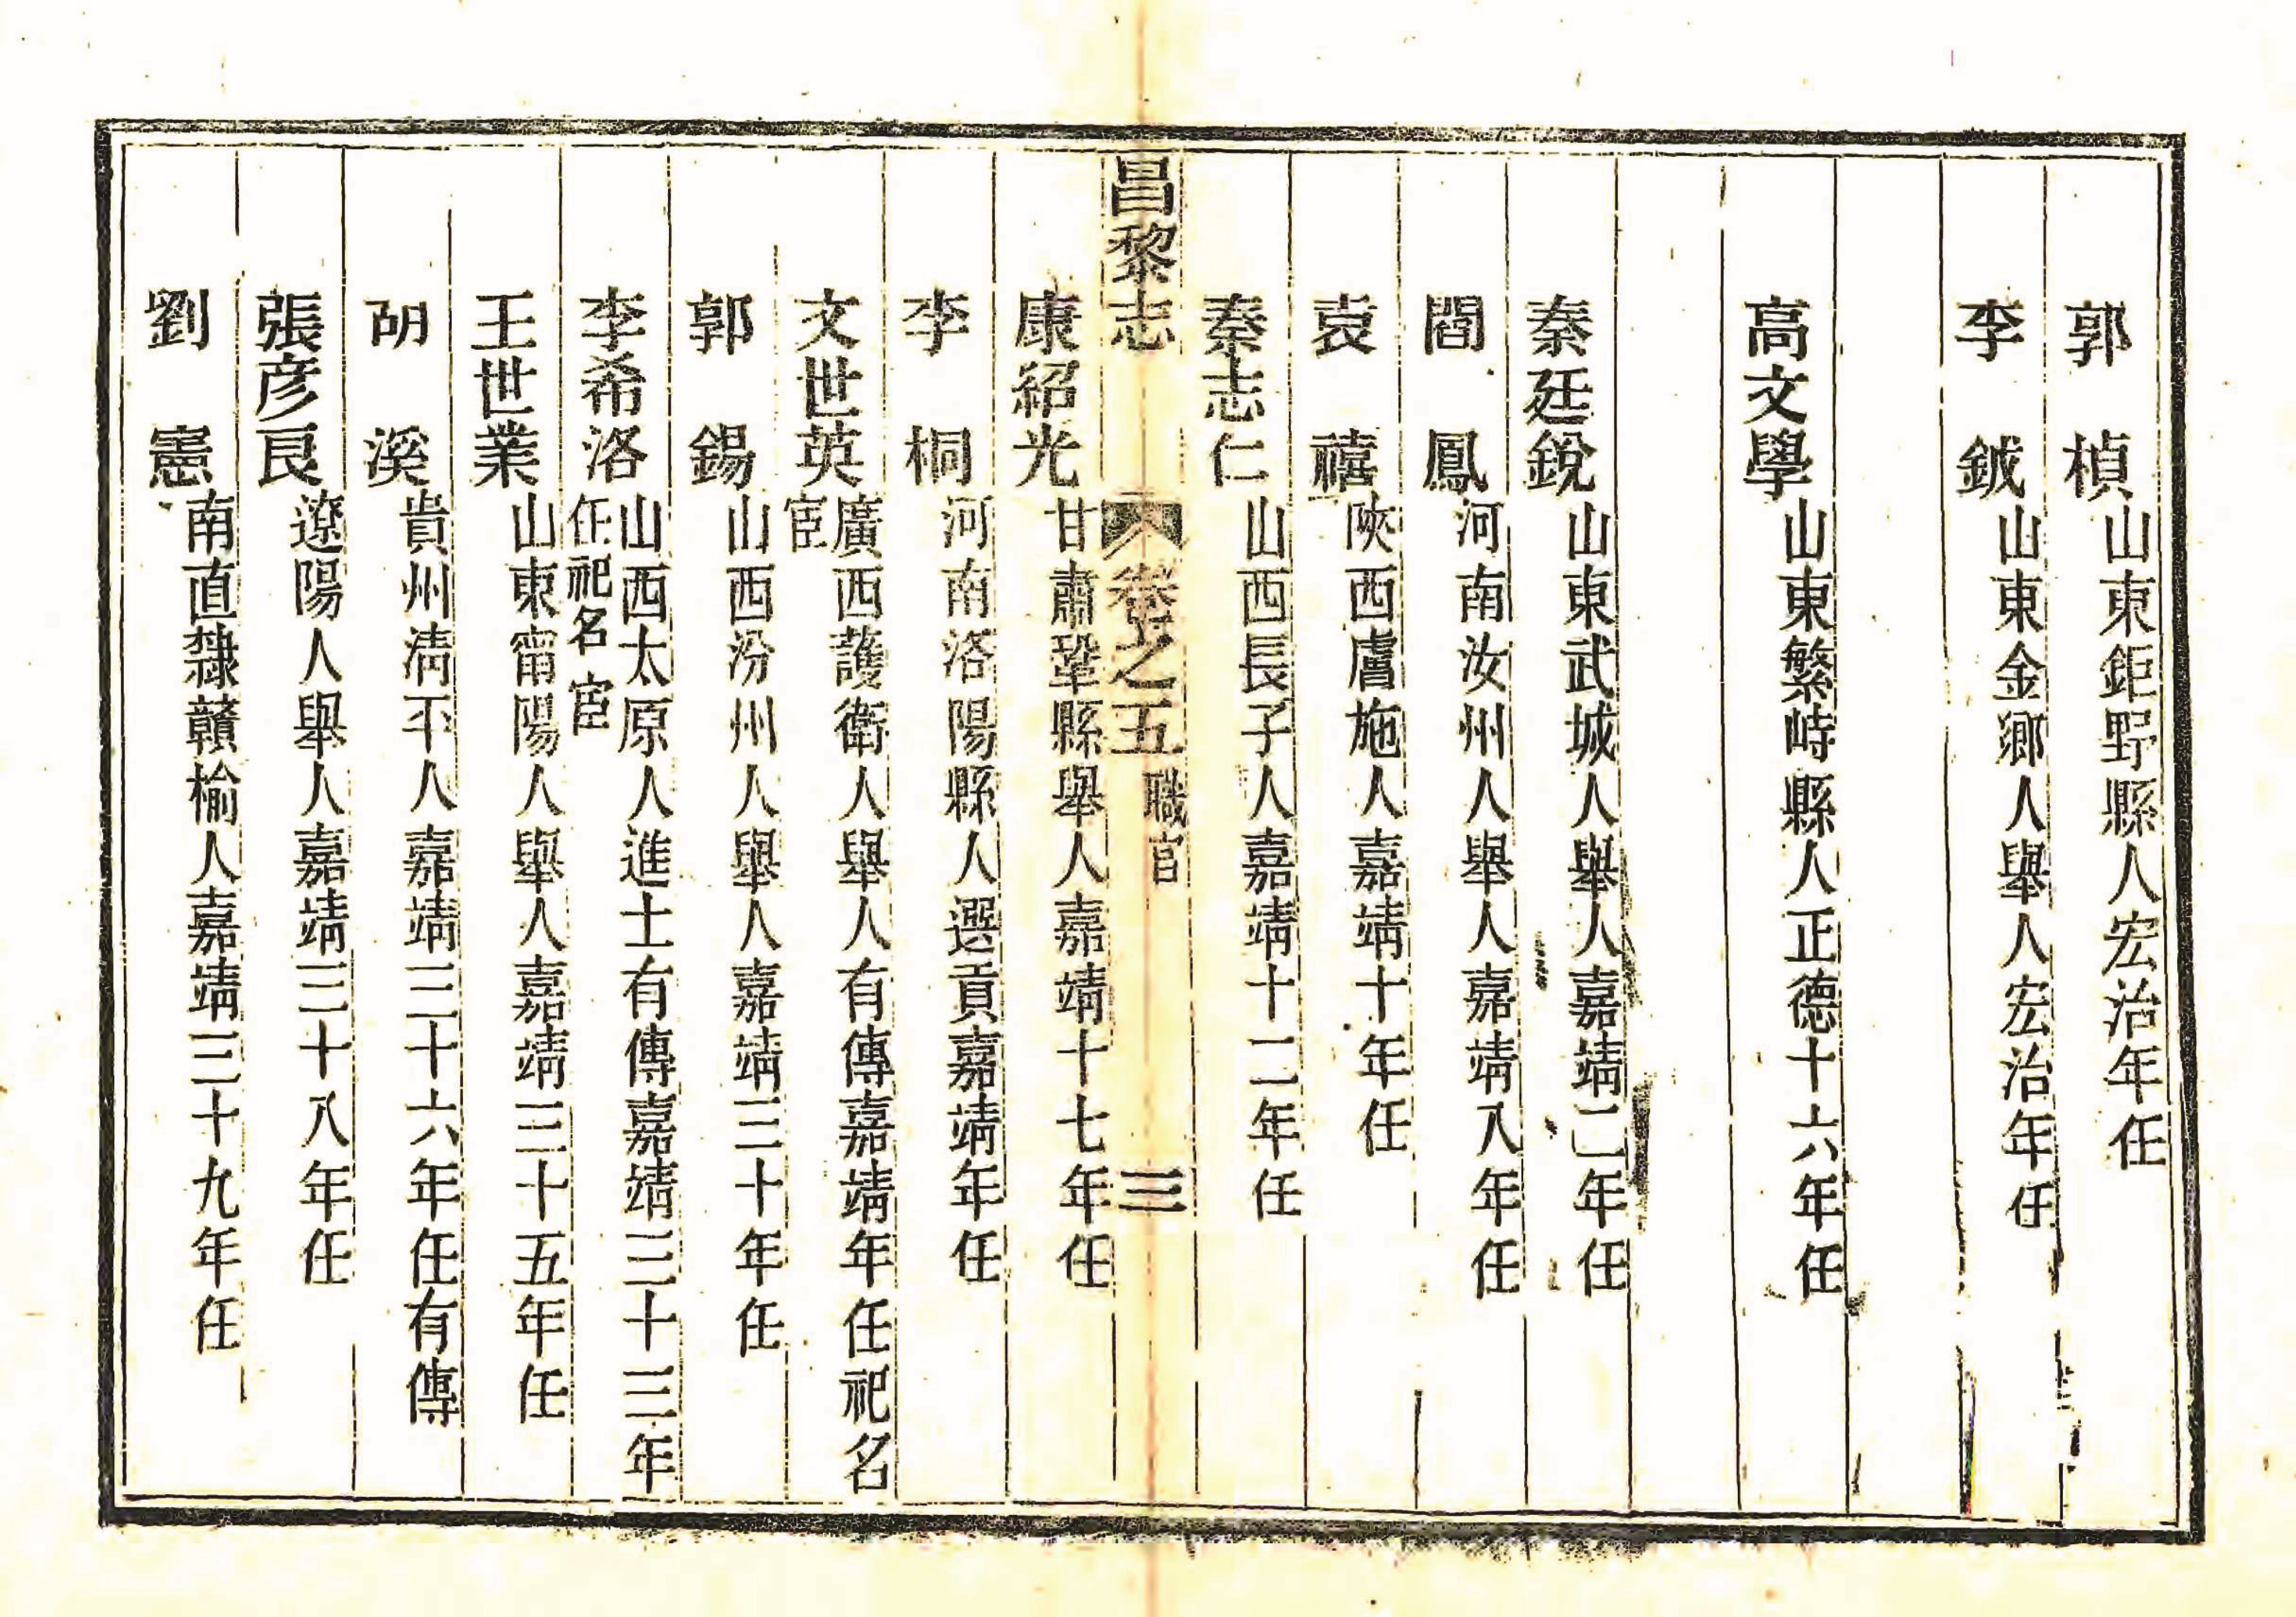 郭　楨山東鉅野縣人宏治年任
李　鉞山東金鄉人舉人宏治年任
高文學山東繁峙縣人正德十六年任
秦廷銳山東武城人舉人嘉靖二年任
閻　鳳河南汝州人舉人嘉靖八年任
袁　禧陝西膚施人嘉靖十年任
秦志仁山西長子人嘉靖十二年任
昌黎志　卷之五　職官　三
康紹光甘肅鞏縣舉人嘉靖十七年任
李　桐河南洛陽縣人選貢嘉靖年任
文世英廣西護衛人舉人有傳嘉靖年任祀名
宦
郭　錫山西汾州人舉人嘉靖三十年任
李希洛山西太原人進士有傳嘉靖三十三年
任祀名宦
王世業山東甯陽人舉人嘉靖三十五年任
胡　溪貴州清平人嘉靖三十六年任有傳
張彥良遼陽人舉人嘉靖三十八年任
劉　憲南直隸贛榆人嘉靖三十九年任